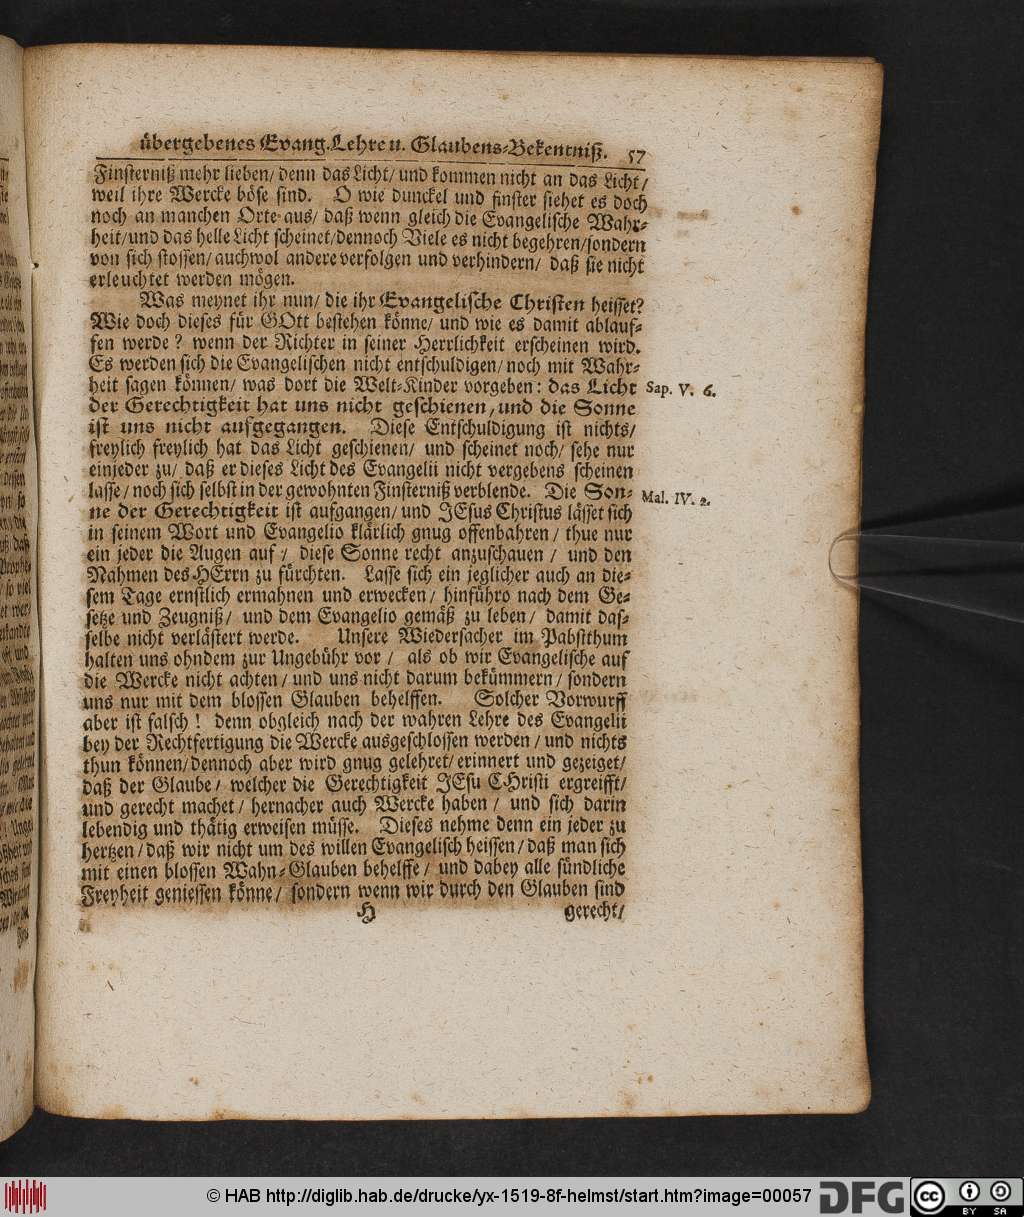 übergebenes Evang. Lehre u. Glaubens-Bekentniß. 57
Finsterniß mehr lieben/ denn das Licht/ und kommen nicht an das Licht/
weil ihre Wercke böse sind. O wie dunckel und finster siehet es doch
noch an manchen Orte aus/ daß wenn gleich die Evangelische Wahr-
heit/ und das helle Licht scheinet/ dennoch Viele es nicht begehren/ sondern
von sich stossen/ auchwol andere verfolgen und verhindern/ daß sie nicht
erleuchtet werden mögen.
Was meynet ihr nun/ die ihr Evangelische Christen heisset?
Wie doch dieses für GOtt bestehen könne/ und wie es damit ablauf-
fen werde? wenn der Richter in seiner Herrlichkeit erscheinen wird.
Es werden sich die Evangelischen nicht entschuldigen/ noch mit Wahr-
heit sagen können/ was dort die Welt-Kinder vorgeben: das Licht
Sap. V. 6.
der Gerechtigkeit hat uns nicht geschienen, und die Sonne
ist uns nicht aufgegangen. Diese Entschuldigung ist nichts/
freylich freylich hat das Licht geschienen/ und scheinet noch/ sehe nur
einjeder zu/ daß er dieses Licht des Evangelii nicht vergebens scheinen
lasse/ noch sich selbst in der gewohnten Finsterniß verblende. Die Son-
Mal. IV. 2.
ne der Gerechtigkeit ist aufgangen/ und JEsus Christus lässet sich
in seinem Wort und Evangelio klärlich gnug offenbahren/ thue nur
ein jeder die Augen auf/ diese Sonne recht anzuschauen/ und den
Nahmen des HErrn zu fürchten. Lasse sich ein jeglicher auch an die-
sem Tage ernstlich ermahnen und erwecken/ hinführo nach dem Ge-
setze und Zeugniß/ und dem Evangelio gemäß zu leben/ damit das-
selbe nicht verlästert werde. Unsere Wiedersacher im Pabstthum
halten uns ohndem zur Ungebühr vor/ als ob wir Evangelische auf
die Wercke nicht achten/ und uns nicht darum bekümmern/ sondern
uns nur mit dem blossen Glauben behelffen. Solcher Vorwurff
aber ist falsch! denn obgleich nach der wahren Lehre des Evangelii
bey der Rechtfertigung die Wercke ausgeschlossen werden/ und nichts
thun können/ dennoch aber wird gnug gelehret/ erinnert und gezeiget/
daß der Glaube/ welcher die Gerechtigkeit JEsu CHristi ergreifft/
und gerecht machet/ hernacher auch Wercke haben/ und sich darin
lebendig und thätig erweisen müsse. Dieses nehme denn ein jeder zu
hertzen/ daß wir nicht um des willen Evangelisch heissen/ daß man sich
mit einen blossen Wahn-Glauben behelffe/ und dabey alle sündliche
Freyheit geniessen könne/ sondern wenn wir durch den Glauben sind
H gerecht/
© HAB http://diglib.hab.de/drucke/yx-1519-8f-helmst/start.htm?image=00057
DFG
cc BY SA